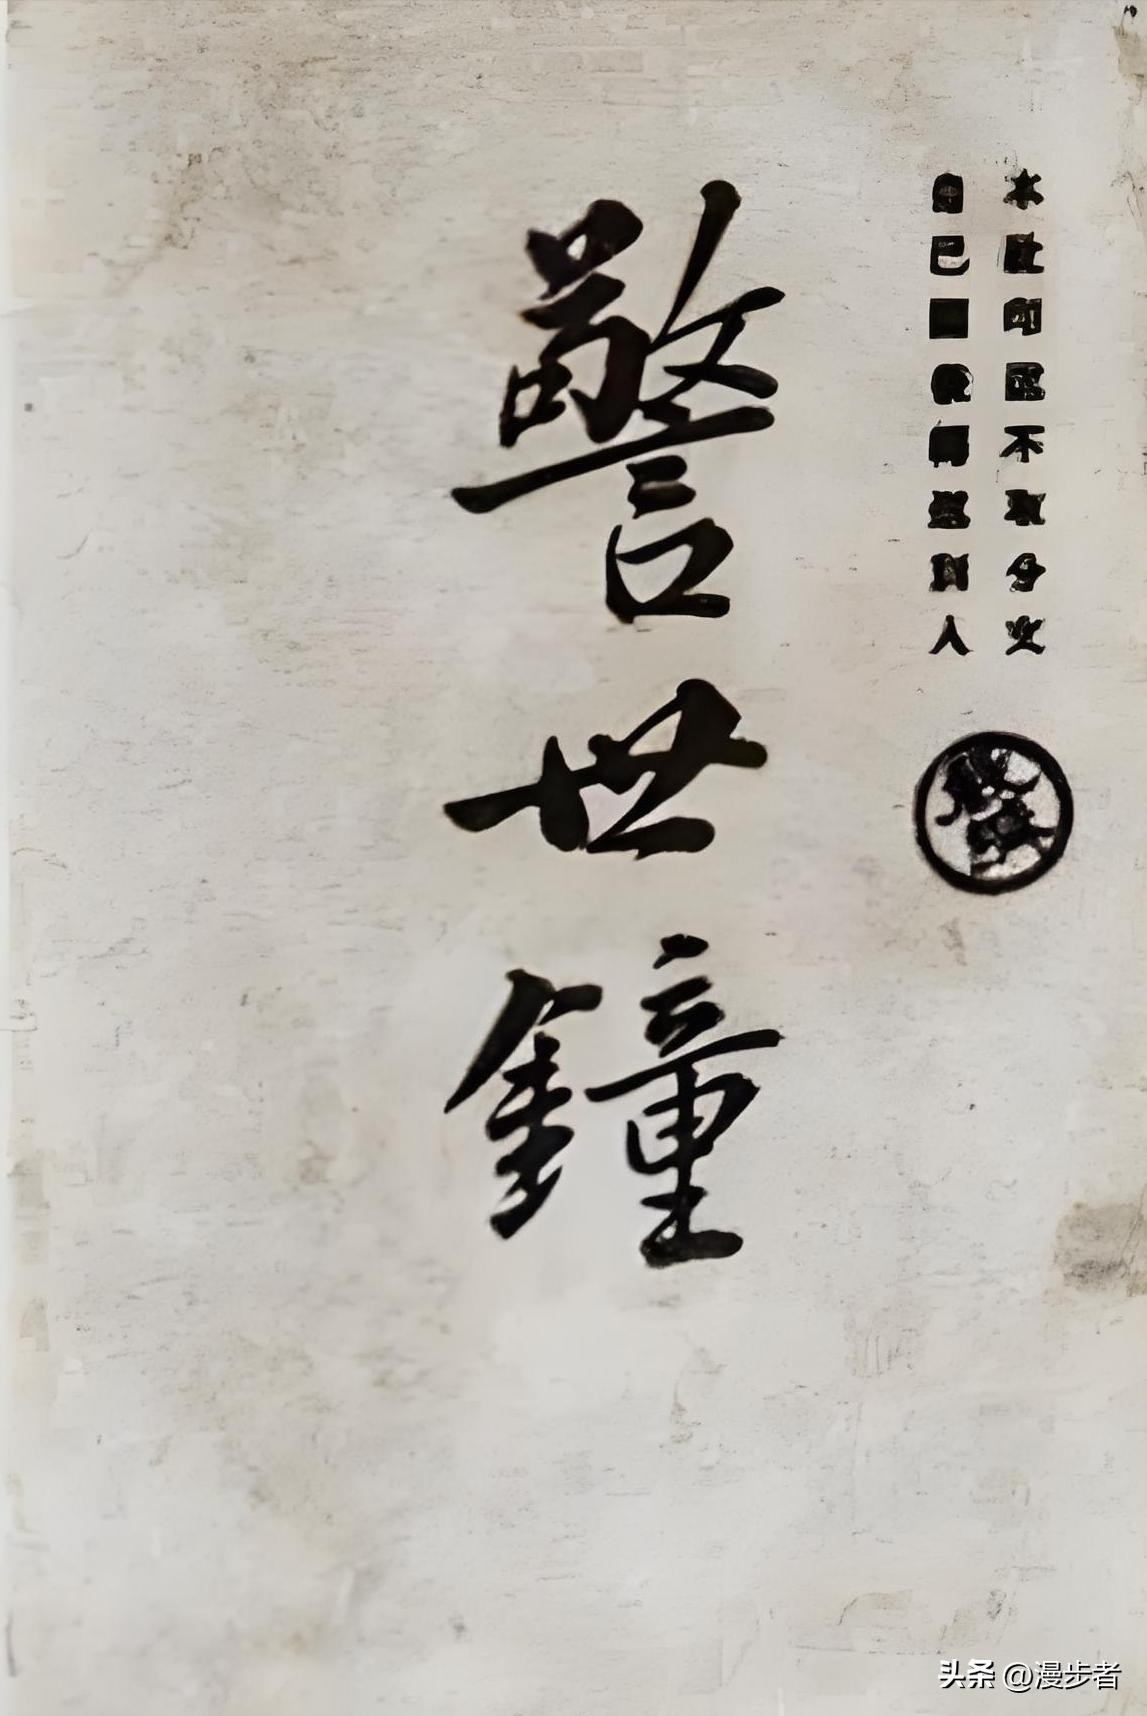 本社印送不取分文
自己看後轉送別人
警世鐘
头条 @漫步者